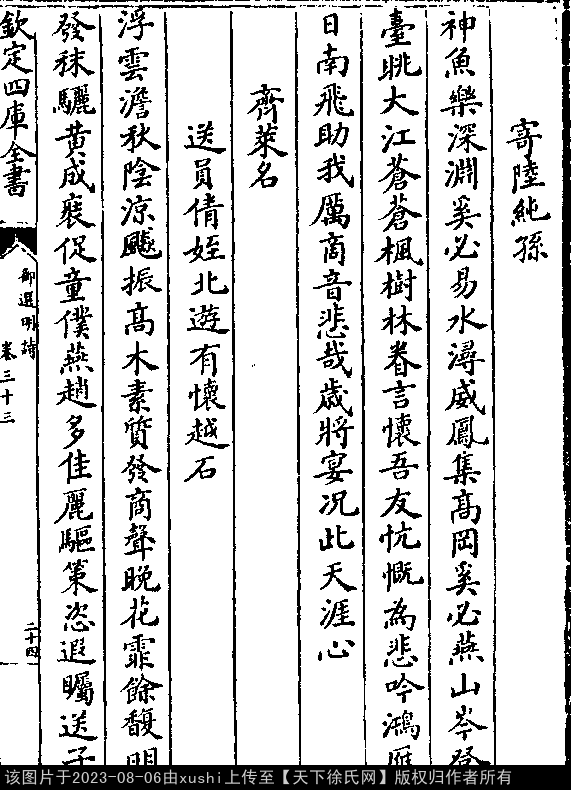 寄陸純孫
神魚樂深淵奚必易水潯威鳳集髙岡奚必燕山岑登
臺眺大江蒼蒼楓樹林眷言懷吾友忼慨為悲吟鴻雁
日南飛助我厲商音悲哉歳將宴况此天涯心
齊萊名
送員倩姪北遊有懷越石
浮雲澹秋陰涼飈振髙木素質發商聲晩花霏餘馥明
發秣驪黄成裝促童僕燕趙多佳麗驅策恣遐矚送子
欽定四庫全書
御選明詩
卷三十三
二十四
该图片于2023-08-06由xushi上传至【天下徐氏网】版权归作者所有